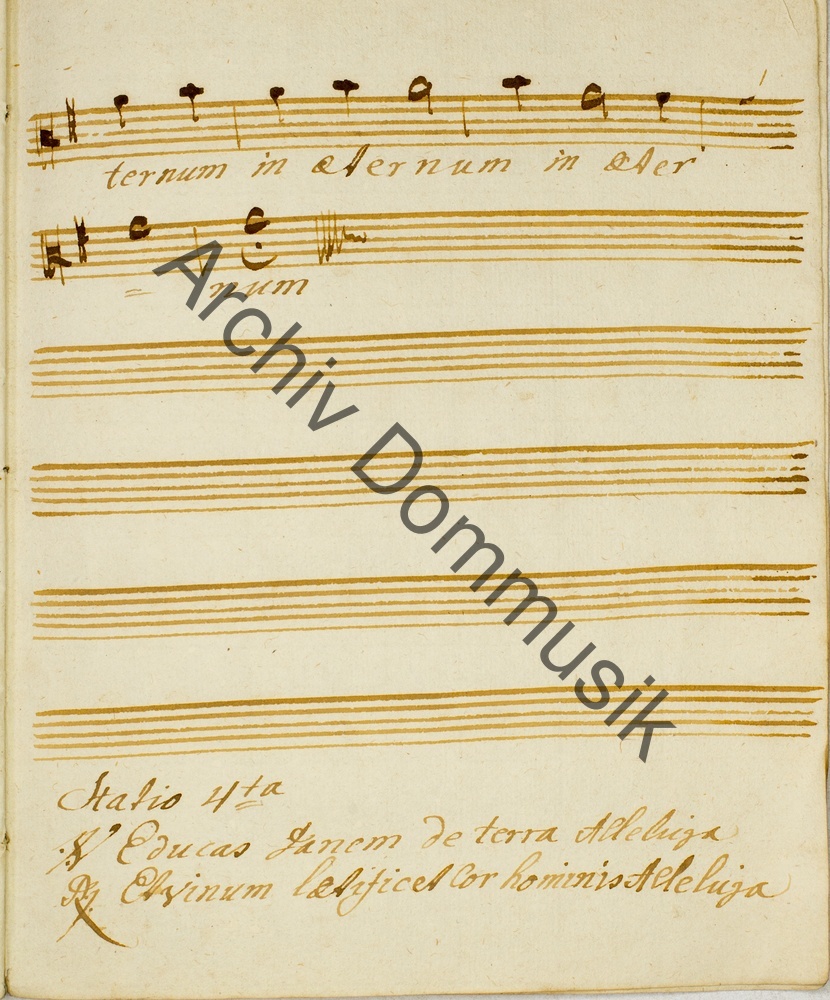 ternum in æternum in æter
= num
Archiv Dommusik
Statio 4ta
℣ Educas Panem de terra Alleluija
℟ Et vinum lætificet Cor hominis Alleluja